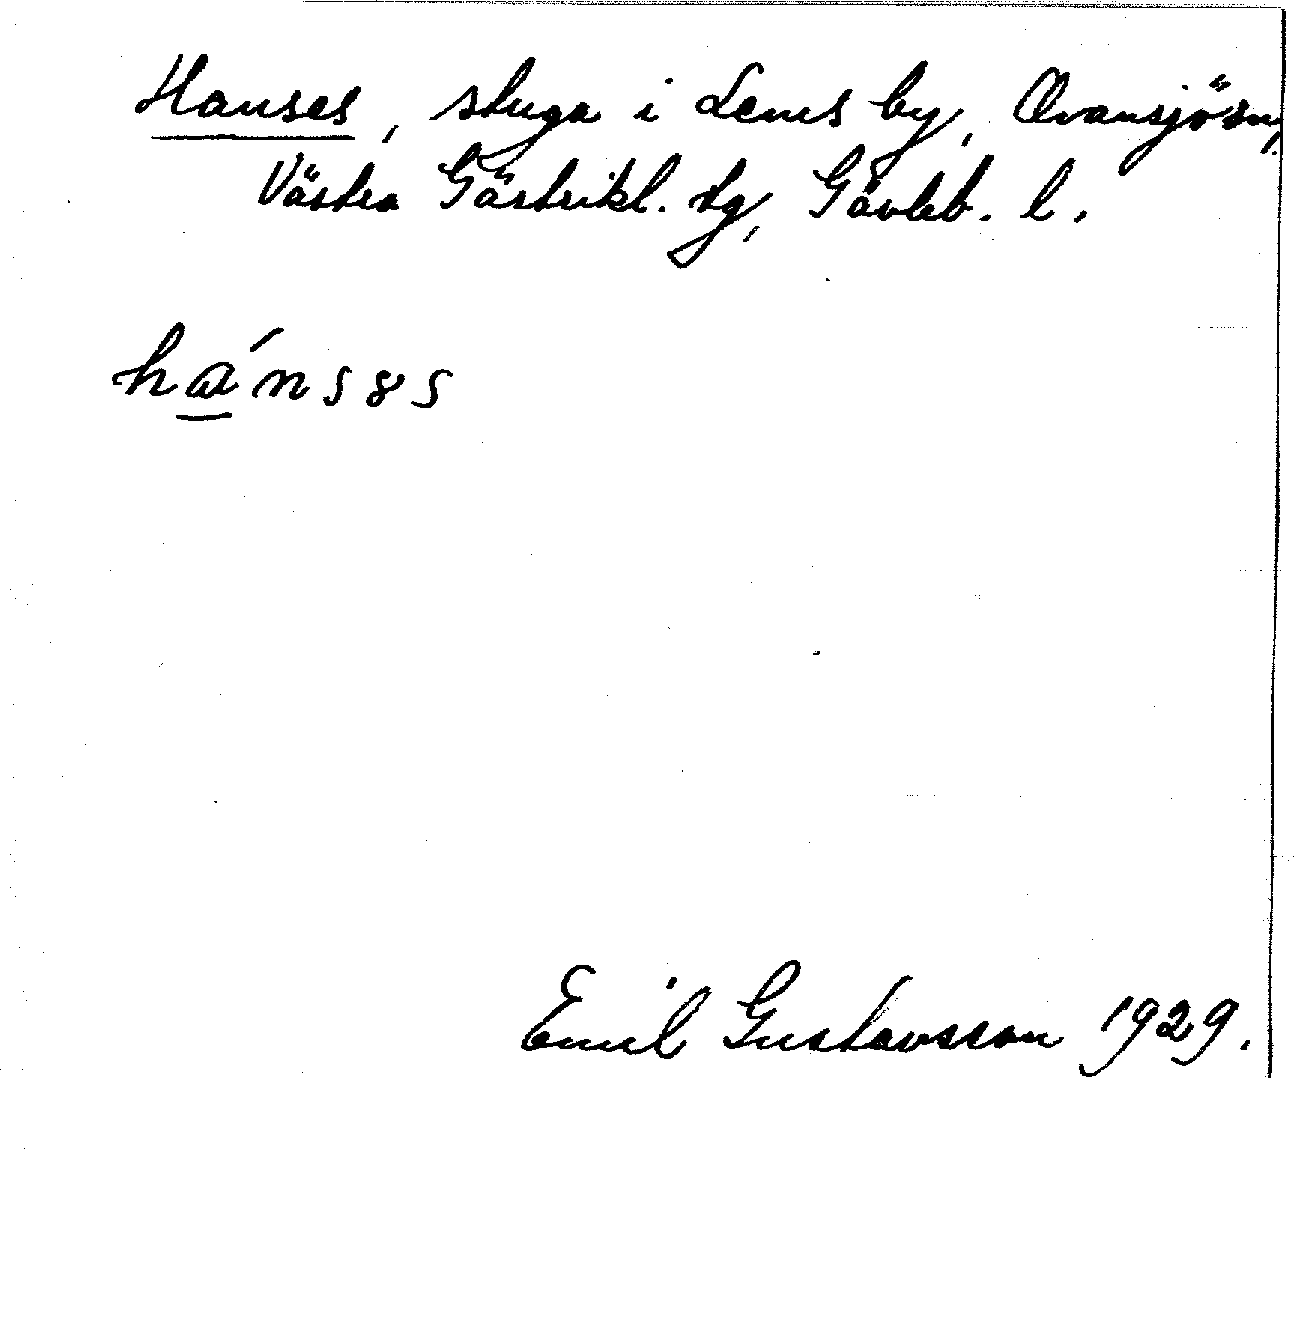 Hanses, stuga i Lems by, Ovansjö sn,
Västra Gästrikl. tg, Gävleb. l.
hánsəs
Emil Gustavsson 1929.